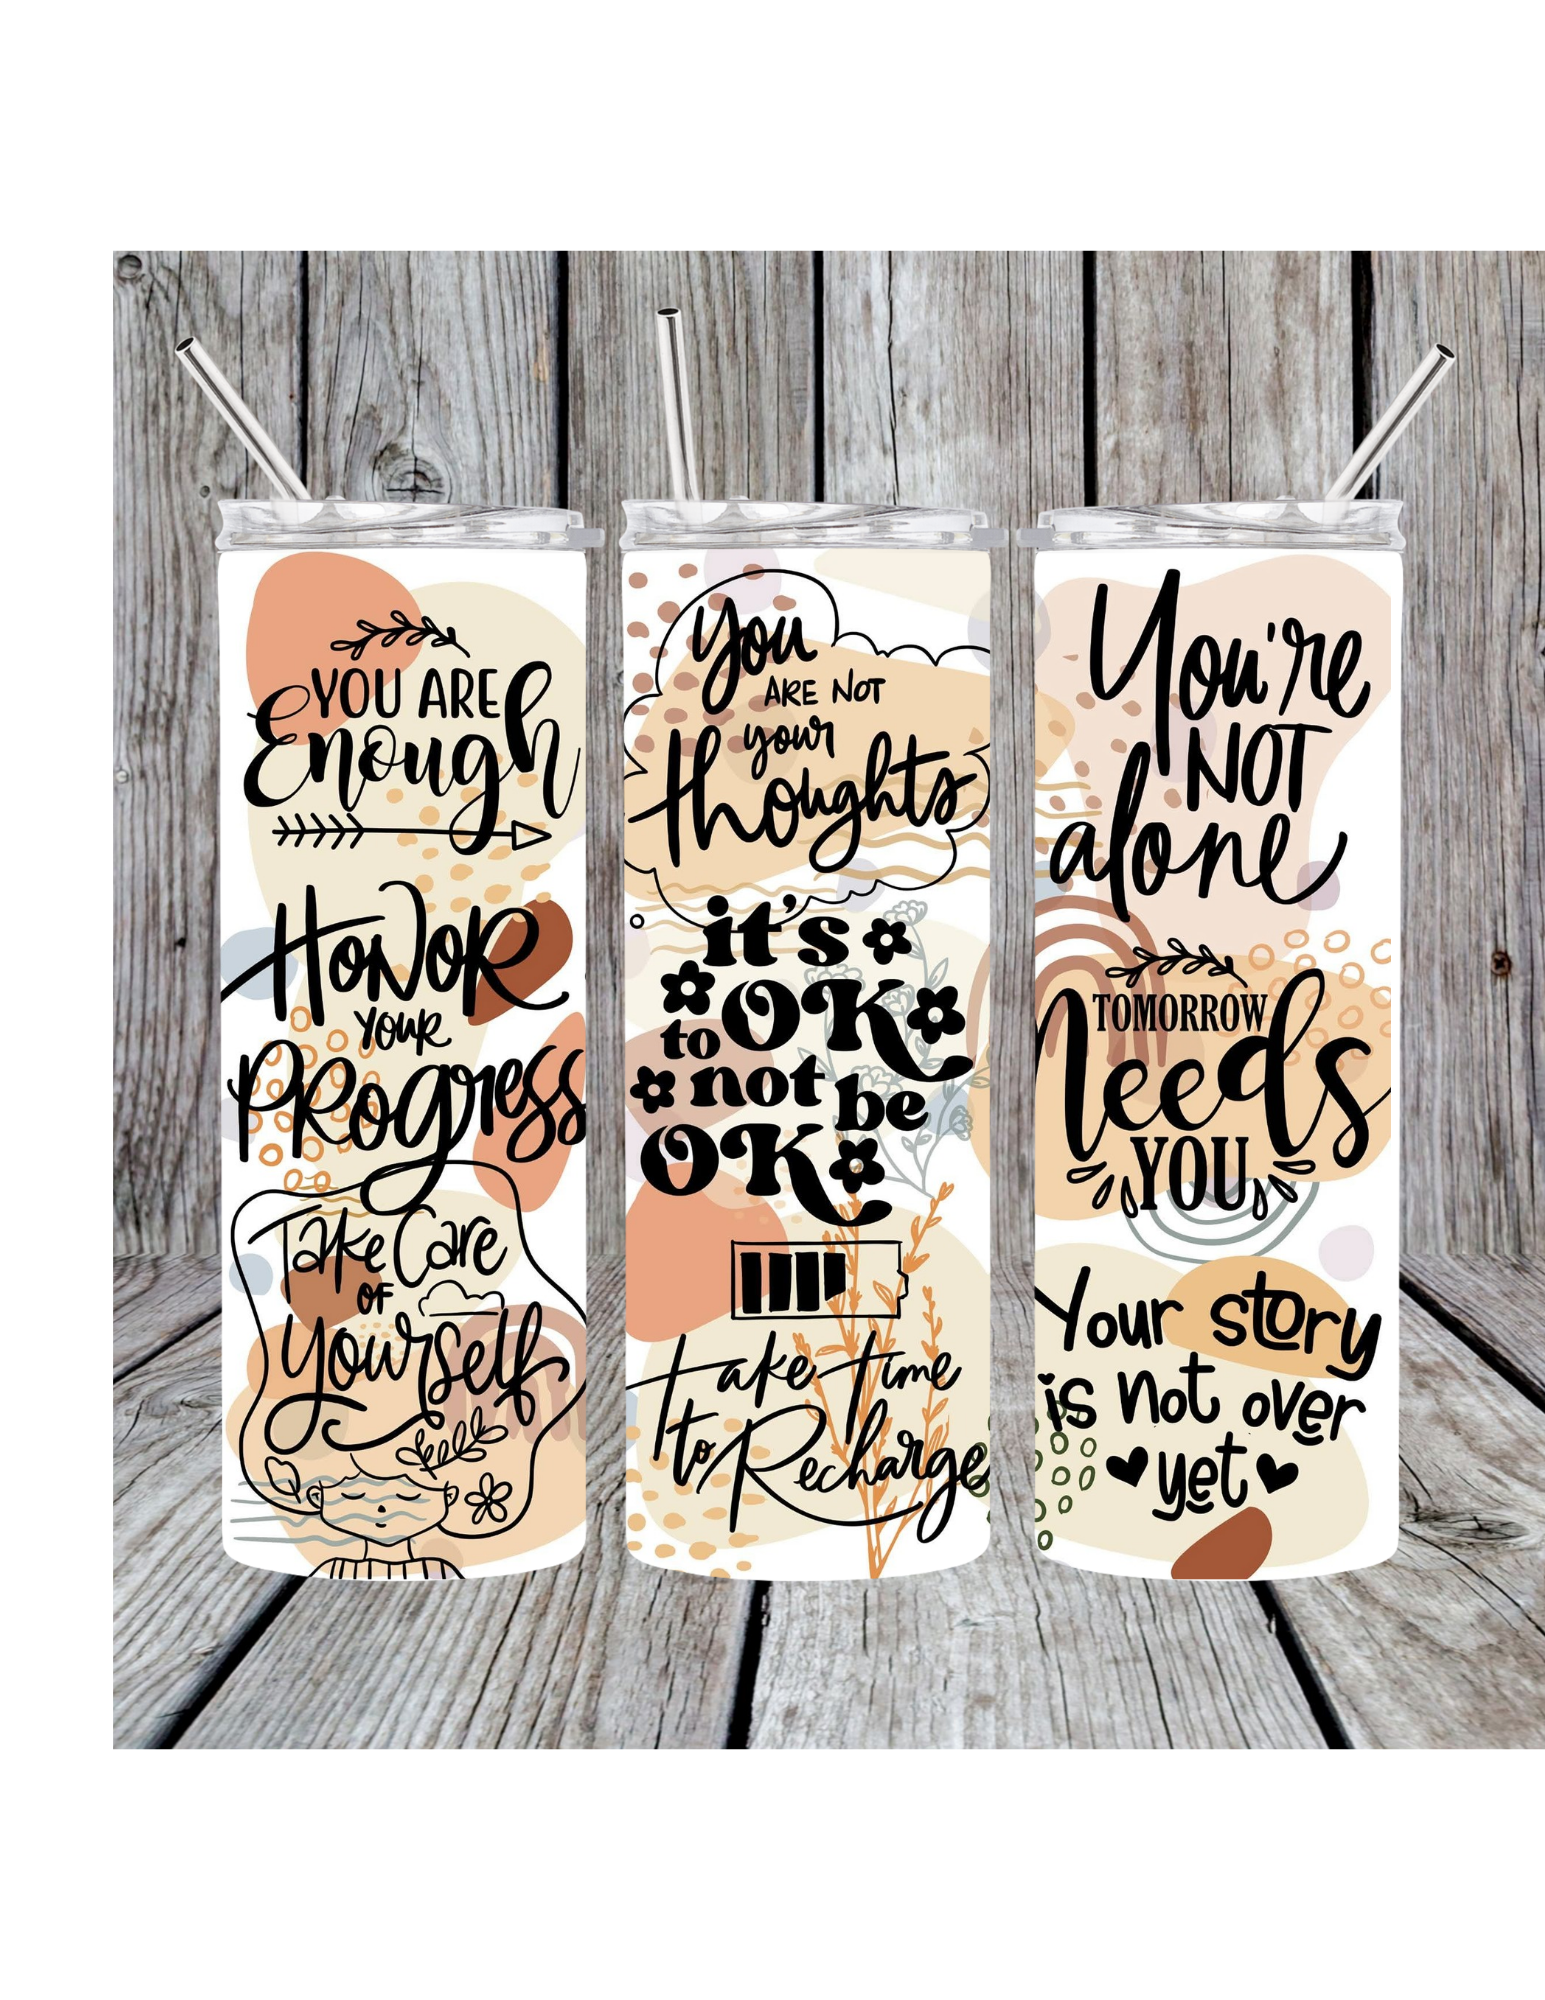 YOU ARE
Enough
HONOR
YOUR
PROgress
Take Care
OF
yourself
you
ARE NOT
your
thoughts
it's
to OK
not be
OK
take time
to Recharge
You're
NOT
alone
TOMORROW
needs
YOU
Your story
is not over
yet